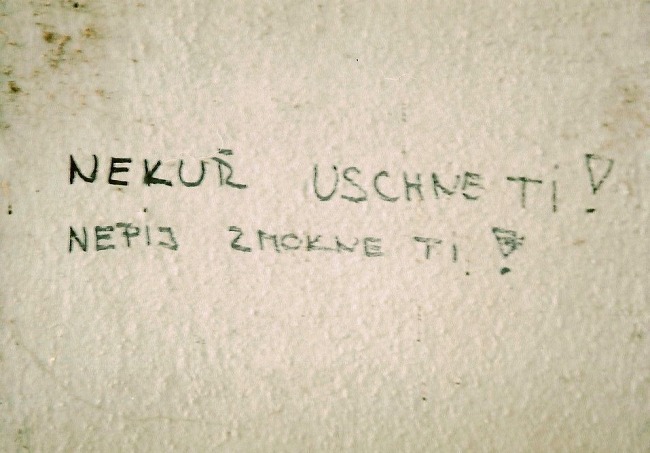 NEKUŘ USCHNE TI!
NEPIJ ZMOKNE TI!